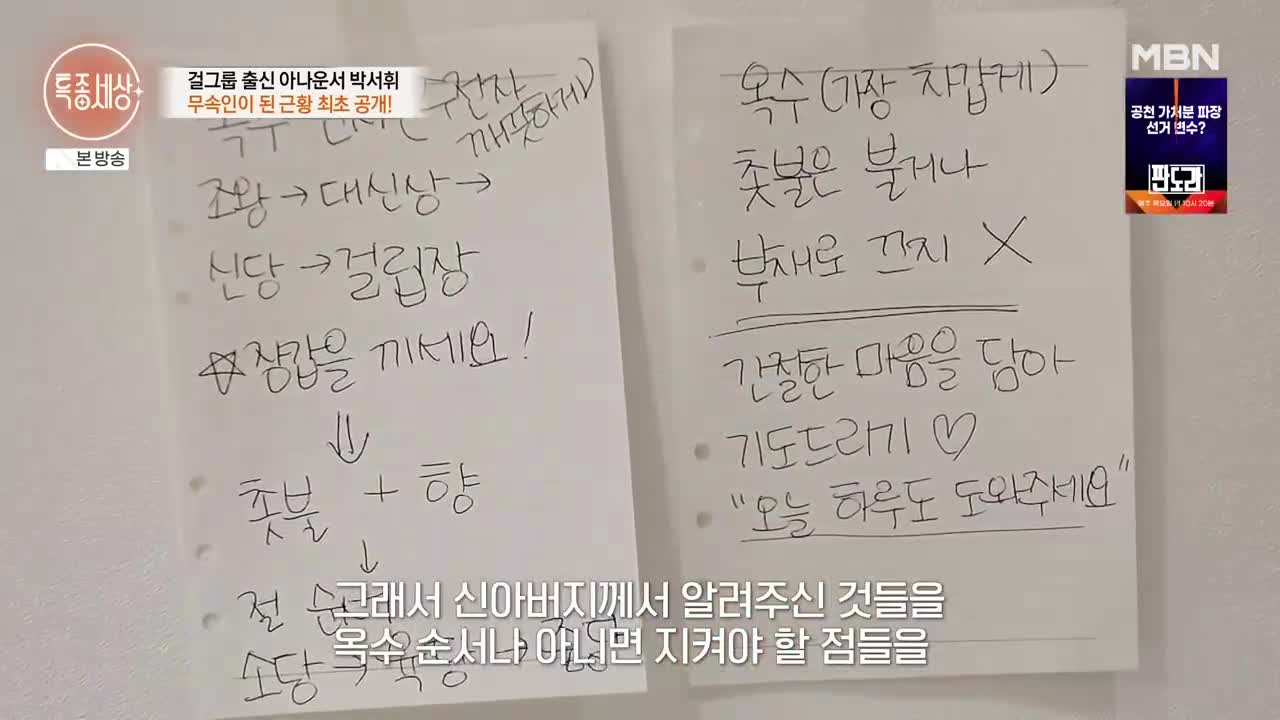 특종세상
본 방송
걸그룹 출신 아나운서 박서휘
무속인이 된 근황 최초 공개!
MBN
공천 가처분 파장
선거 변수?
판도라
매주 목요일 밤 10시 20분
옥수
깨끗하게)
조왕→대신상→
신당→걸립장
☆장갑을 끼세요!
⇓
촛불 + 향
↓
절 순서
소당→
옥수 (가장 차갑게)
촛불은 불거나
부채로 끄지 X
간절한 마음을 담아
기도드리기 ♡
"오늘 하루도 도와주세요"
그래서 신아버지께서 알려주신 것들을
옥수 순서나 아니면 지켜야 할 점들을